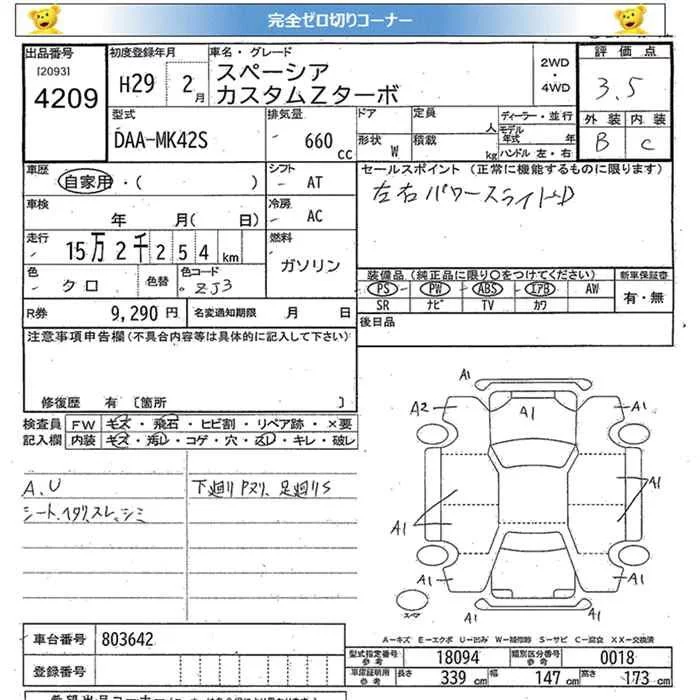 完全ゼロ切りコーナー
出品番号 初度登録年月 車名・グレード 2WD ・ 4WD 評価点
[2093]
4209 H29 2月 スペーシア
カスタムZターボ 3.5
型式 排気量 ドア 定員 人 ディーラー・並行 外装 内装
DAA-MK42S 660 cc 形状 W 積載 kg モデル年式 年 ハンドル 左・右 B C
車歴 シフト セールスポイント (正常に機能するものに限ります)
自家用・( ) AT 左右パワースライドD
車検 冷房
年 月( 日) AC
走行 燃料
15万2千254km ガソリン
色 色替 色コード 装備品(純正品に限り○をつけてください) 新車保証書
クロ ZJ3 PS PW ABS エアB AW 有・無
SR ナビ TV カワ
R券 9,290円 名変通知期限 月 日 後日品
注意事項申告欄(不具合内容等は具体的に記入して下さい)
修復歴 有 [箇所 ]
検査員 FW キズ・飛石・ヒビ割・リペア跡・×要
記入欄 内装 キズ・汚レ・コゲ・穴・スレ・キレ・破レ
A.U 下廻りPヌリ、足廻りS
シートヘタリ、スレ、シミ
A1
A2 A1 A1
A1 A1
A1 A1
A1 A1
スペア
A-キズ E-エクボ U-凹み W-補修跡 S-サビ C-腐食 XX-交換済
車台番号 803642
型式指定番号 参考 18094 類別区分番号 参考 0018
登録番号 車庫証明用 参考 長さ 339 cm 幅 147 cm 高さ 173 cm